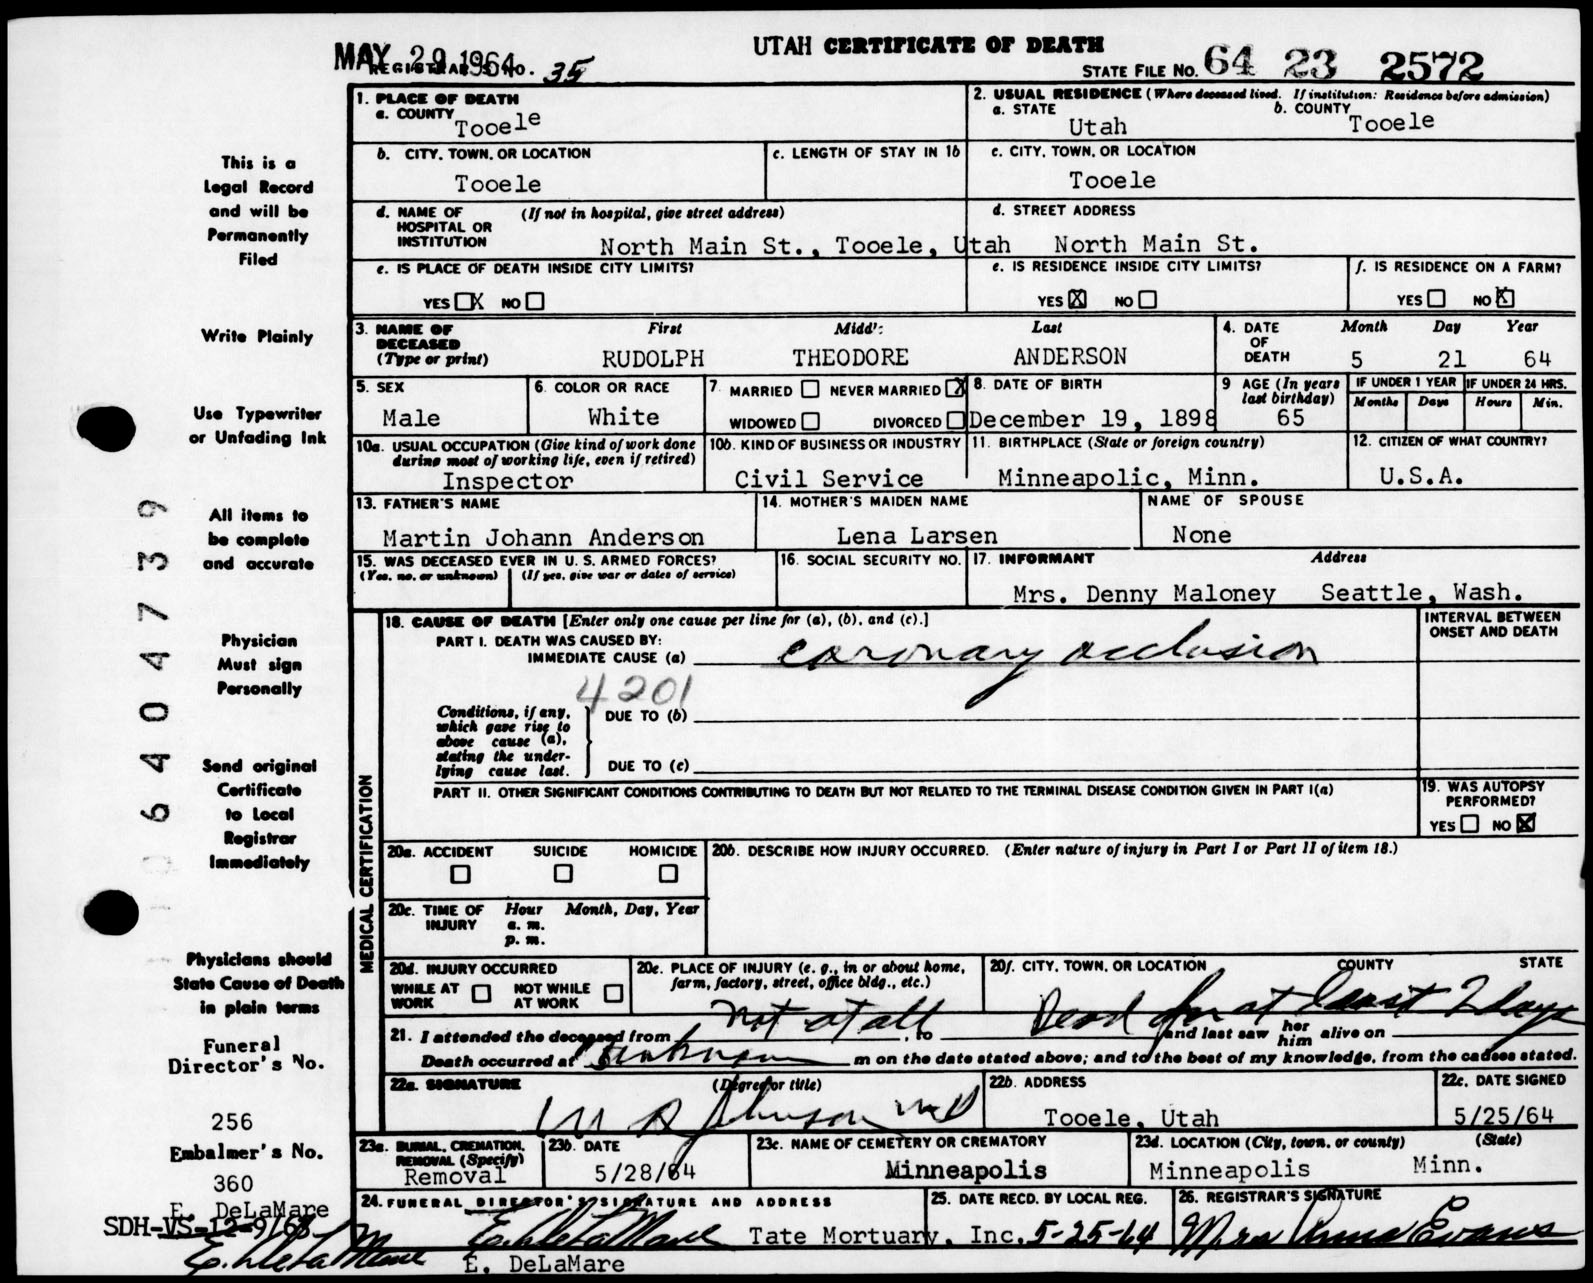 MAY 29 1964
UTAH CERTIFICATE OF DEATH
REGISTRAR'S NO. 35
STATE FILE NO. 64 23 2572
1. PLACE OF DEATH
a. COUNTY Tooele
2. USUAL RESIDENCE (Where deceased lived. If institution: Residence before admission)
a. STATE Utah b. COUNTY Tooele
b. CITY, TOWN, OR LOCATION Tooele
c. LENGTH OF STAY IN 1b
c. CITY, TOWN, OR LOCATION Tooele
d. NAME OF HOSPITAL OR INSTITUTION (If not in hospital, give street address)
North Main St., Tooele, Utah
d. STREET ADDRESS
North Main St.
e. IS PLACE OF DEATH INSIDE CITY LIMITS?
YES X NO
e. IS RESIDENCE INSIDE CITY LIMITS?
YES X NO
f. IS RESIDENCE ON A FARM?
YES NO X
3. NAME OF DECEASED (Type or print)
First Midd': Last
RUDOLPH THEODORE ANDERSON
4. DATE OF DEATH
Month Day Year
5 21 64
5. SEX
Male
6. COLOR OR RACE
White
7 MARRIED NEVER MARRIED X
WIDOWED DIVORCED
8. DATE OF BIRTH
December 19, 1898
9 AGE (In years last birthday)
65
IF UNDER 1 YEAR
Months Days
IF UNDER 24 HRS.
Hours Min.
10a. USUAL OCCUPATION (Give kind of work done during most of working life, even if retired)
Inspector
10b. KIND OF BUSINESS OR INDUSTRY
Civil Service
11. BIRTHPLACE (State or foreign country)
Minneapolic, Minn.
12. CITIZEN OF WHAT COUNTRY?
U.S.A.
13. FATHER'S NAME
Martin Johann Anderson
14. MOTHER'S MAIDEN NAME
Lena Larsen
NAME OF SPOUSE
None
15. WAS DECEASED EVER IN U. S. ARMED FORCES?
(Yes, no, or unknown) (If yes, give war or dates of service)
16. SOCIAL SECURITY NO.
17. INFORMANT Address
Mrs. Denny Maloney Seattle, Wash.
MEDICAL CERTIFICATION
18. CAUSE OF DEATH [Enter only one cause per line for (a), (b), and (c).]
INTERVAL BETWEEN ONSET AND DEATH
PART I. DEATH WAS CAUSED BY:
IMMEDIATE CAUSE (a) coronary occlusion
4201
Conditions, if any, which gave rise to above cause (a), stating the underlying cause last.
DUE TO (b)
DUE TO (c)
PART II. OTHER SIGNIFICANT CONDITIONS CONTRIBUTING TO DEATH BUT NOT RELATED TO THE TERMINAL DISEASE CONDITION GIVEN IN PART I(a)
19. WAS AUTOPSY PERFORMED?
YES NO X
20a. ACCIDENT SUICIDE HOMICIDE
20b. DESCRIBE HOW INJURY OCCURRED. (Enter nature of injury in Part I or Part II of item 18.)
20c. TIME OF INJURY Hour Month, Day, Year
a. m.
p. m.
20d. INJURY OCCURRED
WHILE AT WORK NOT WHILE AT WORK
20e. PLACE OF INJURY (e. g., in or about home, farm, factory, street, office bldg., etc.)
20f. CITY, TOWN, OR LOCATION COUNTY STATE
21. I attended the deceased from not at all, to Dead for at least 2 days and last saw her him alive on
Death occurred at unknown m on the date stated above; and to the best of my knowledge, from the causes stated.
22a. SIGNATURE (Degree or title)
Johnson MD
22b. ADDRESS
Tooele, Utah
22c. DATE SIGNED
5/25/64
23a. BURIAL, CREMATION, REMOVAL (Specify)
Removal
23b DATE
5/28/64
23c. NAME OF CEMETERY OR CREMATORY
Minneapolis
23d. LOCATION (City, town, or county) (State)
Minneapolis Minn.
24. FUNERAL DIRECTOR'S SIGNATURE AND ADDRESS
E. DeLaMare Tate Mortuary, Inc.
E. DeLaMare
25. DATE RECD. BY LOCAL REG.
5-25-64
26. REGISTRAR'S SIGNATURE
Mrs Anna Evans
This is a
Legal Record
and will be
Permanently
Filed
Write Plainly
Use Typewriter
or Unfading Ink
All items to
be complete
and accurate
Physician
Must sign
Personally
Send original
Certificate
to Local
Registrar
Immediately
Physicians should
State Cause of Death
in plain terms
Funeral
Director's No.
256
Embalmer's No.
360
E. DeLaMare
SDH-VS-12-9/63
E. DeLaMare
6404739